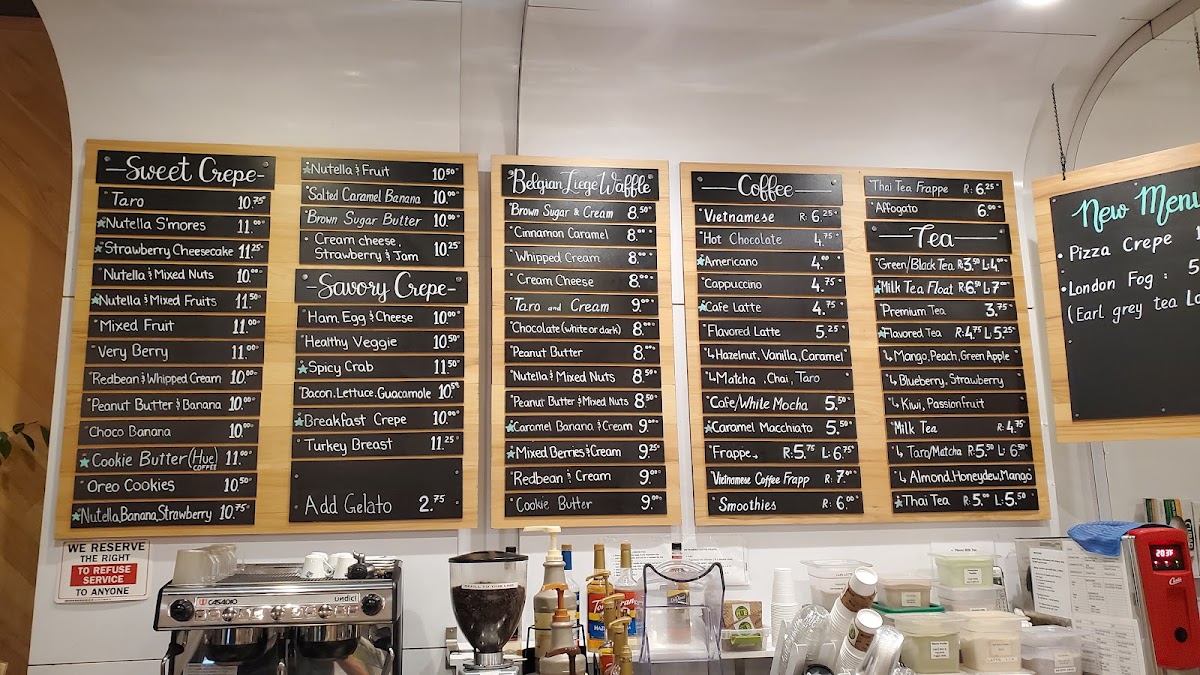 Sweet Crepe
Taro 10.75
Nutella S'mores 11.00
Strawberry Cheesecake 11.25
Nutella & Mixed Nuts 10.00
Nutella & Mixed Fruits 11.50
Mixed Fruit 11.00
Very Berry 11.00
Redbean & Whipped Cream 10.00
Peanut Butter & Banana 10.00
Choco Banana 10.00
Cookie Butter (Hue) COFFEE 11.00
Oreo Cookies 10.50
Nutella, Banana, Strawberry 10.75
Nutella & Fruit 10.50
Salted Caramel Banana 10.00
Brown Sugar Butter 10.00
Cream cheese,
Strawberry & Jam 10.25
Savory Crepe
Ham, Egg & Cheese 10.00
Healthy Veggie 10.50
Spicy Crab 11.50
Bacon, Lettuce, Guacamole 10.50
Breakfast Crepe 10.00
Turkey Breast 11.25
Add Gelato 2.75
Belgian Liege Waffle
Brown Sugar & Cream 8.50
Cinnamon Caramel 8.00
Whipped Cream 8.00
Cream Cheese 8.00
Taro and Cream 9.00
Chocolate (white or dark) 8.00
Peanut Butter 8.00
Nutella & Mixed Nuts 8.50
Peanut Butter & Mixed Nuts 8.50
Caramel Banana & Cream 9.00
Mixed Berries & Cream 9.25
Redbean & Cream 9.00
Cookie Butter 9.00
Coffee
Vietnamese R: 6.25
Hot Chocolate 4.75
Americano 4.00
Cappuccino 4.75
Cafe Latte 4.75
Flavored Latte 5.25
↳ Hazelnut, Vanilla, Caramel
↳ Matcha, Chai, Taro
Cafe/White Mocha 5.50
Caramel Macchiato 5.50
Frappe→ R: 5.75 L: 6.75
Vietnamese Coffee Frapp R: 7.00
Smoothies R: 6.00
Thai Tea Frappe R: 6.25
Affogato 6.00
Tea
Green/Black Tea R: 3.50 L: 4.00
Milk Tea Float R: 6.50 L: 7.00
Premium Tea 3.75
Flavored Tea R: 4.75 L: 5.25
↳ Mango, Peach, Green Apple
↳ Blueberry, Strawberry
↳ Kiwi, Passion Fruit
Milk Tea R: 4.75
↳ Taro/Matcha R: 5.50 L: 6.50
↳ Almond, Honeydew, Mango
Thai Tea R: 5.00 L: 5.50
New Menu
• Pizza Crepe
• London Fog : 5
(Earl grey tea
WE RESERVE
THE RIGHT
TO REFUSE
SERVICE
TO ANYONE
CASADIO
undici
203F